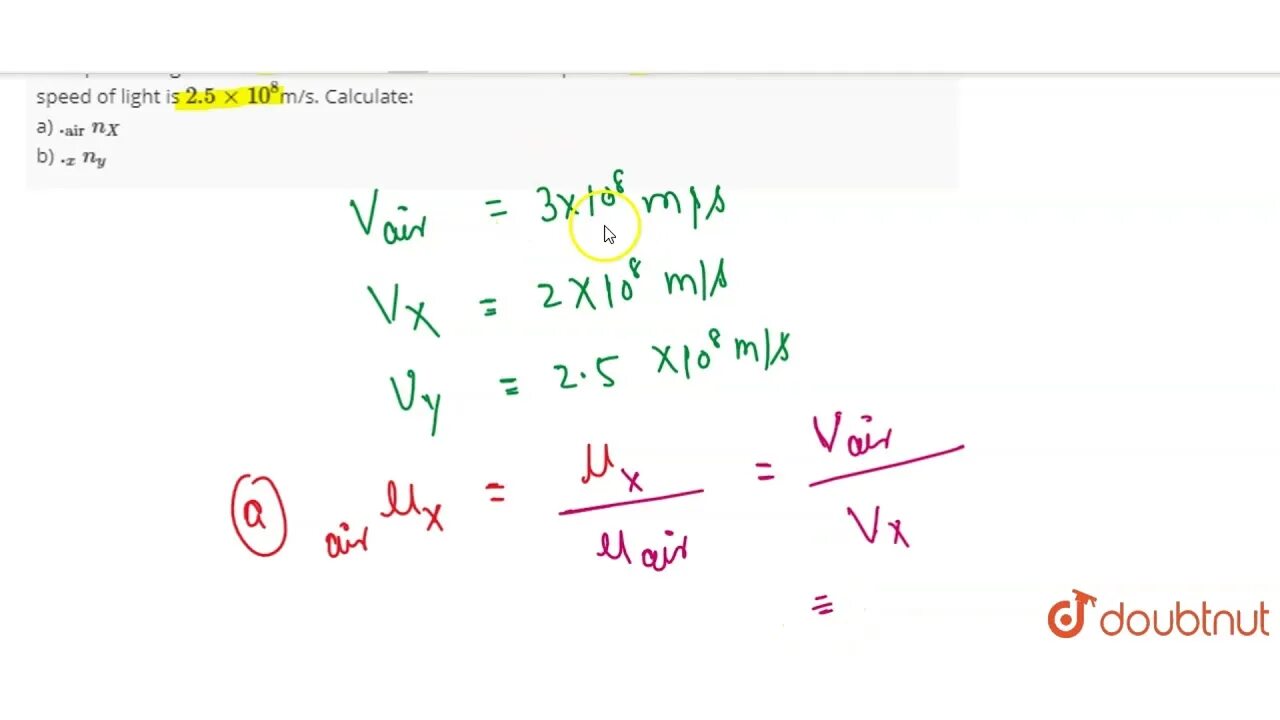 speed of light is 2.5 × 10⁸m/s. Calculate:
a) ·air nX
b) ·x ny
Vair = 3×10⁸ m/s
VX = 2×10⁸ m/s
Vy = 2.5 ×10⁸ m/s
(a) air μx = μx / μair = Vair / Vx
=
doubtnut